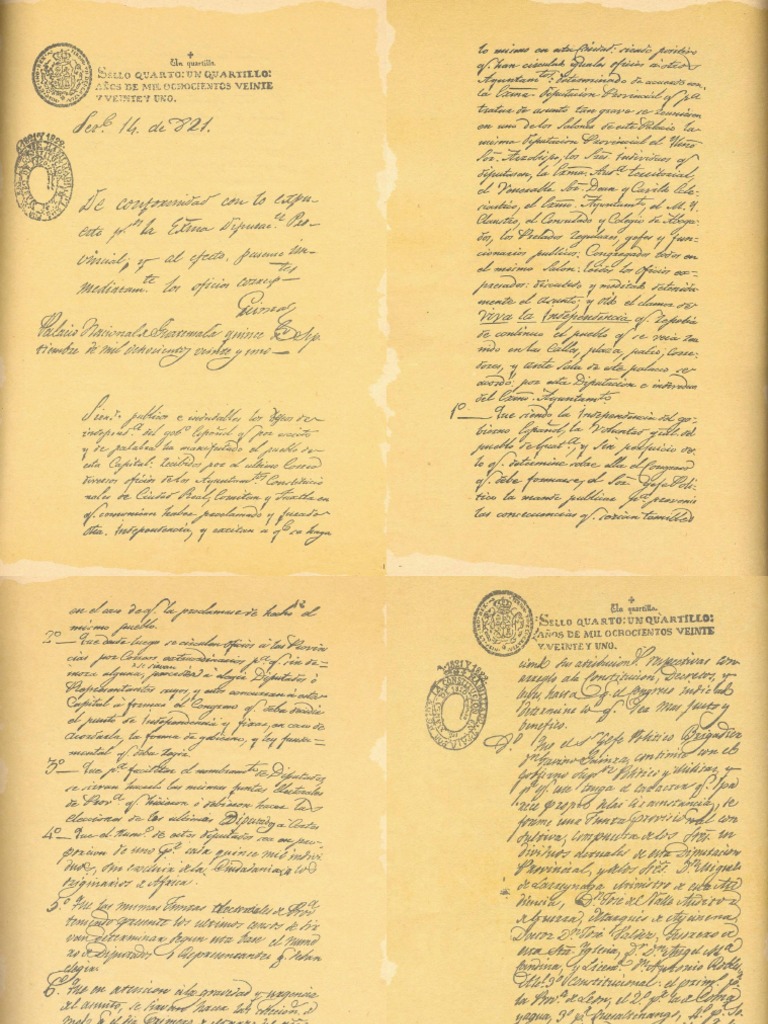 Un quartillo.
SELLO QUARTO: UN QUARTILLO:
AÑOS DE MIL OCHOCIENTOS VEINTE
Y VEINTE Y UNO.
14. de 821.
De conformidad con lo expu-
esto pr. la Exma Diputac.n Pro-
vincial, y al efecto, pasense in-
mediatam.te los oficios corresp.tes
Palacio Nacional de Guatemala quince de Sep-
tiembre de mil ochocientos veinte y uno
Siendo publicos e indudables los deseos de
independ.a del gob.o Español q. por escrito
y de palabra ha manifestado el pueblo de
esta Capital: Recibidos por el ultimo Correo
diversos oficios de los Ayuntam.tos Constitucio-
nales de Ciudad Real, Comitan y Tuxtla en
q. comunican haber proclamado y jurado
dha. Independencia, y excitan a q.e se haga
lo mismo en esta Ciudad: siendo positivo
q. han circulado iguales oficios a otros
Ayuntam.tos: determinado de acuerdo con
la Exma. Diputacion Provincial q. pa.
tratar de asunto tan grave se reuniesen
en uno de los Salones de este Palacio la
misma Diputacion Provincial el Illmo
Sor. Arzobispo, los Sres. Individuos q.
diputasen, la Exma. Aud.a territorial,
el Venerable Sor. Dean y Cavildo Ecle-
siastico, el Exmo. Ayuntam.to, el M. Y.
Claustro, el Consulado y Colegio de Aboga-
dos, los Prelados regulares, gefes y fun-
cionarios publicos: Congregados todos en
el mismo Salon: leidos los oficios ex-
presados: discutido y meditado detenida-
mente el asunto; y oido el clamor de
Viva la Independencia q. repetia
de continuo el pueblo q. se veia reu-
nido en las Calles, plaza, patio, Corre-
dores, y ante Sala de este palacio se
acordó: por esta Diputacion e individuos
del Exmo. Ayuntam.to
1º — Que siendo la Independencia del go-
bierno Español, la Voluntad gral. del
pueblo de Guat.a, y sin perjuicio de
lo q. determine sobre ella el Congreso
q. debe formarse, el Sor. Gefe Poli-
tico la mande publicar pa. prevenir
las consecuencias q. serian temibles
en el caso de q. la proclamase de hecho el
mismo pueblo.
2º — Que desde luego se circulen oficios a las Provin-
cias por Correos extraordinarios pa. q. sin de-
mora alguna se sirvan proceder a elegir Diputados ó
Representantes suyos, y estos concurran a esta
Capital a formar el Congreso q. deba decidir
el punto de Independencia y fixar, en caso de
acordarla, la forma de gobierno, y ley funda-
mental q. deba regir.
3º — Que pa. facilitar el nombram.to de Diputados
se sirvan hacerlo las mismas Juntas Electorales
de Prov.a q. hicieron ó debieron hacer las
elecciones de los ultimos Diputados a Cortes
4º — Que el num.o de estos diputados sea en pro-
porcion de uno por cada quince mil indivi-
duos, sin excluir de la Ciudadania a los
originarios de Africa.
5º Que las mismas Juntas electorales de Prov.a
teniendo presente los ultimos censos se sir-
van determinar segun esta base el nume-
ro de Diputados ó Representantes q. deban
elegir.
6º Que en atencion a la gravedad y urgencia
del asunto, se sirvan hacer las elecciones de
modo q. el dia primero de
Un quartillo.
SELLO QUARTO: UN QUARTILLO:
AÑOS DE MIL OCHOCIENTOS VEINTE
Y VEINTE Y UNO.
sus atribuciones respectivas con
arreglo a la Constitucion, Decretos, y
Leyes, hasta q. el Congreso indicado
determine lo q. sea mas justo y
benefico.
Que el Sr. Gefe Politico Brigadier
Dn. Gavino Gainza, continue con el
Gobierno Sup.r Politico y Militar, y
pa. q. este tenga el caracter q. pa-
rece propio de las circunstancias, se
forme una Junta provisional con-
sultiva, compuesta de los Sres. in-
dividuos actuales de esta Diputacion
Provincial, y de los Sres. Dn. Miguel
de Larreynaga Ministro de esta Au-
diencia, Dn. José del Valle Auditor
de Guerra, Marques de Aycinena,
Doctor Dn. José Valdez, Tesorero de
esta Sta. Yglesia, Dr. Dn. Angel Ma.
Candina, y Licen.do Dn. Antonio Robles
Alc.e 3º Constitucional: el primero pr.
la Prov.a de Leon, el 2º pr. la de Coma-
yagua, 3º pr. Quezaltenango, 4º pr. So-